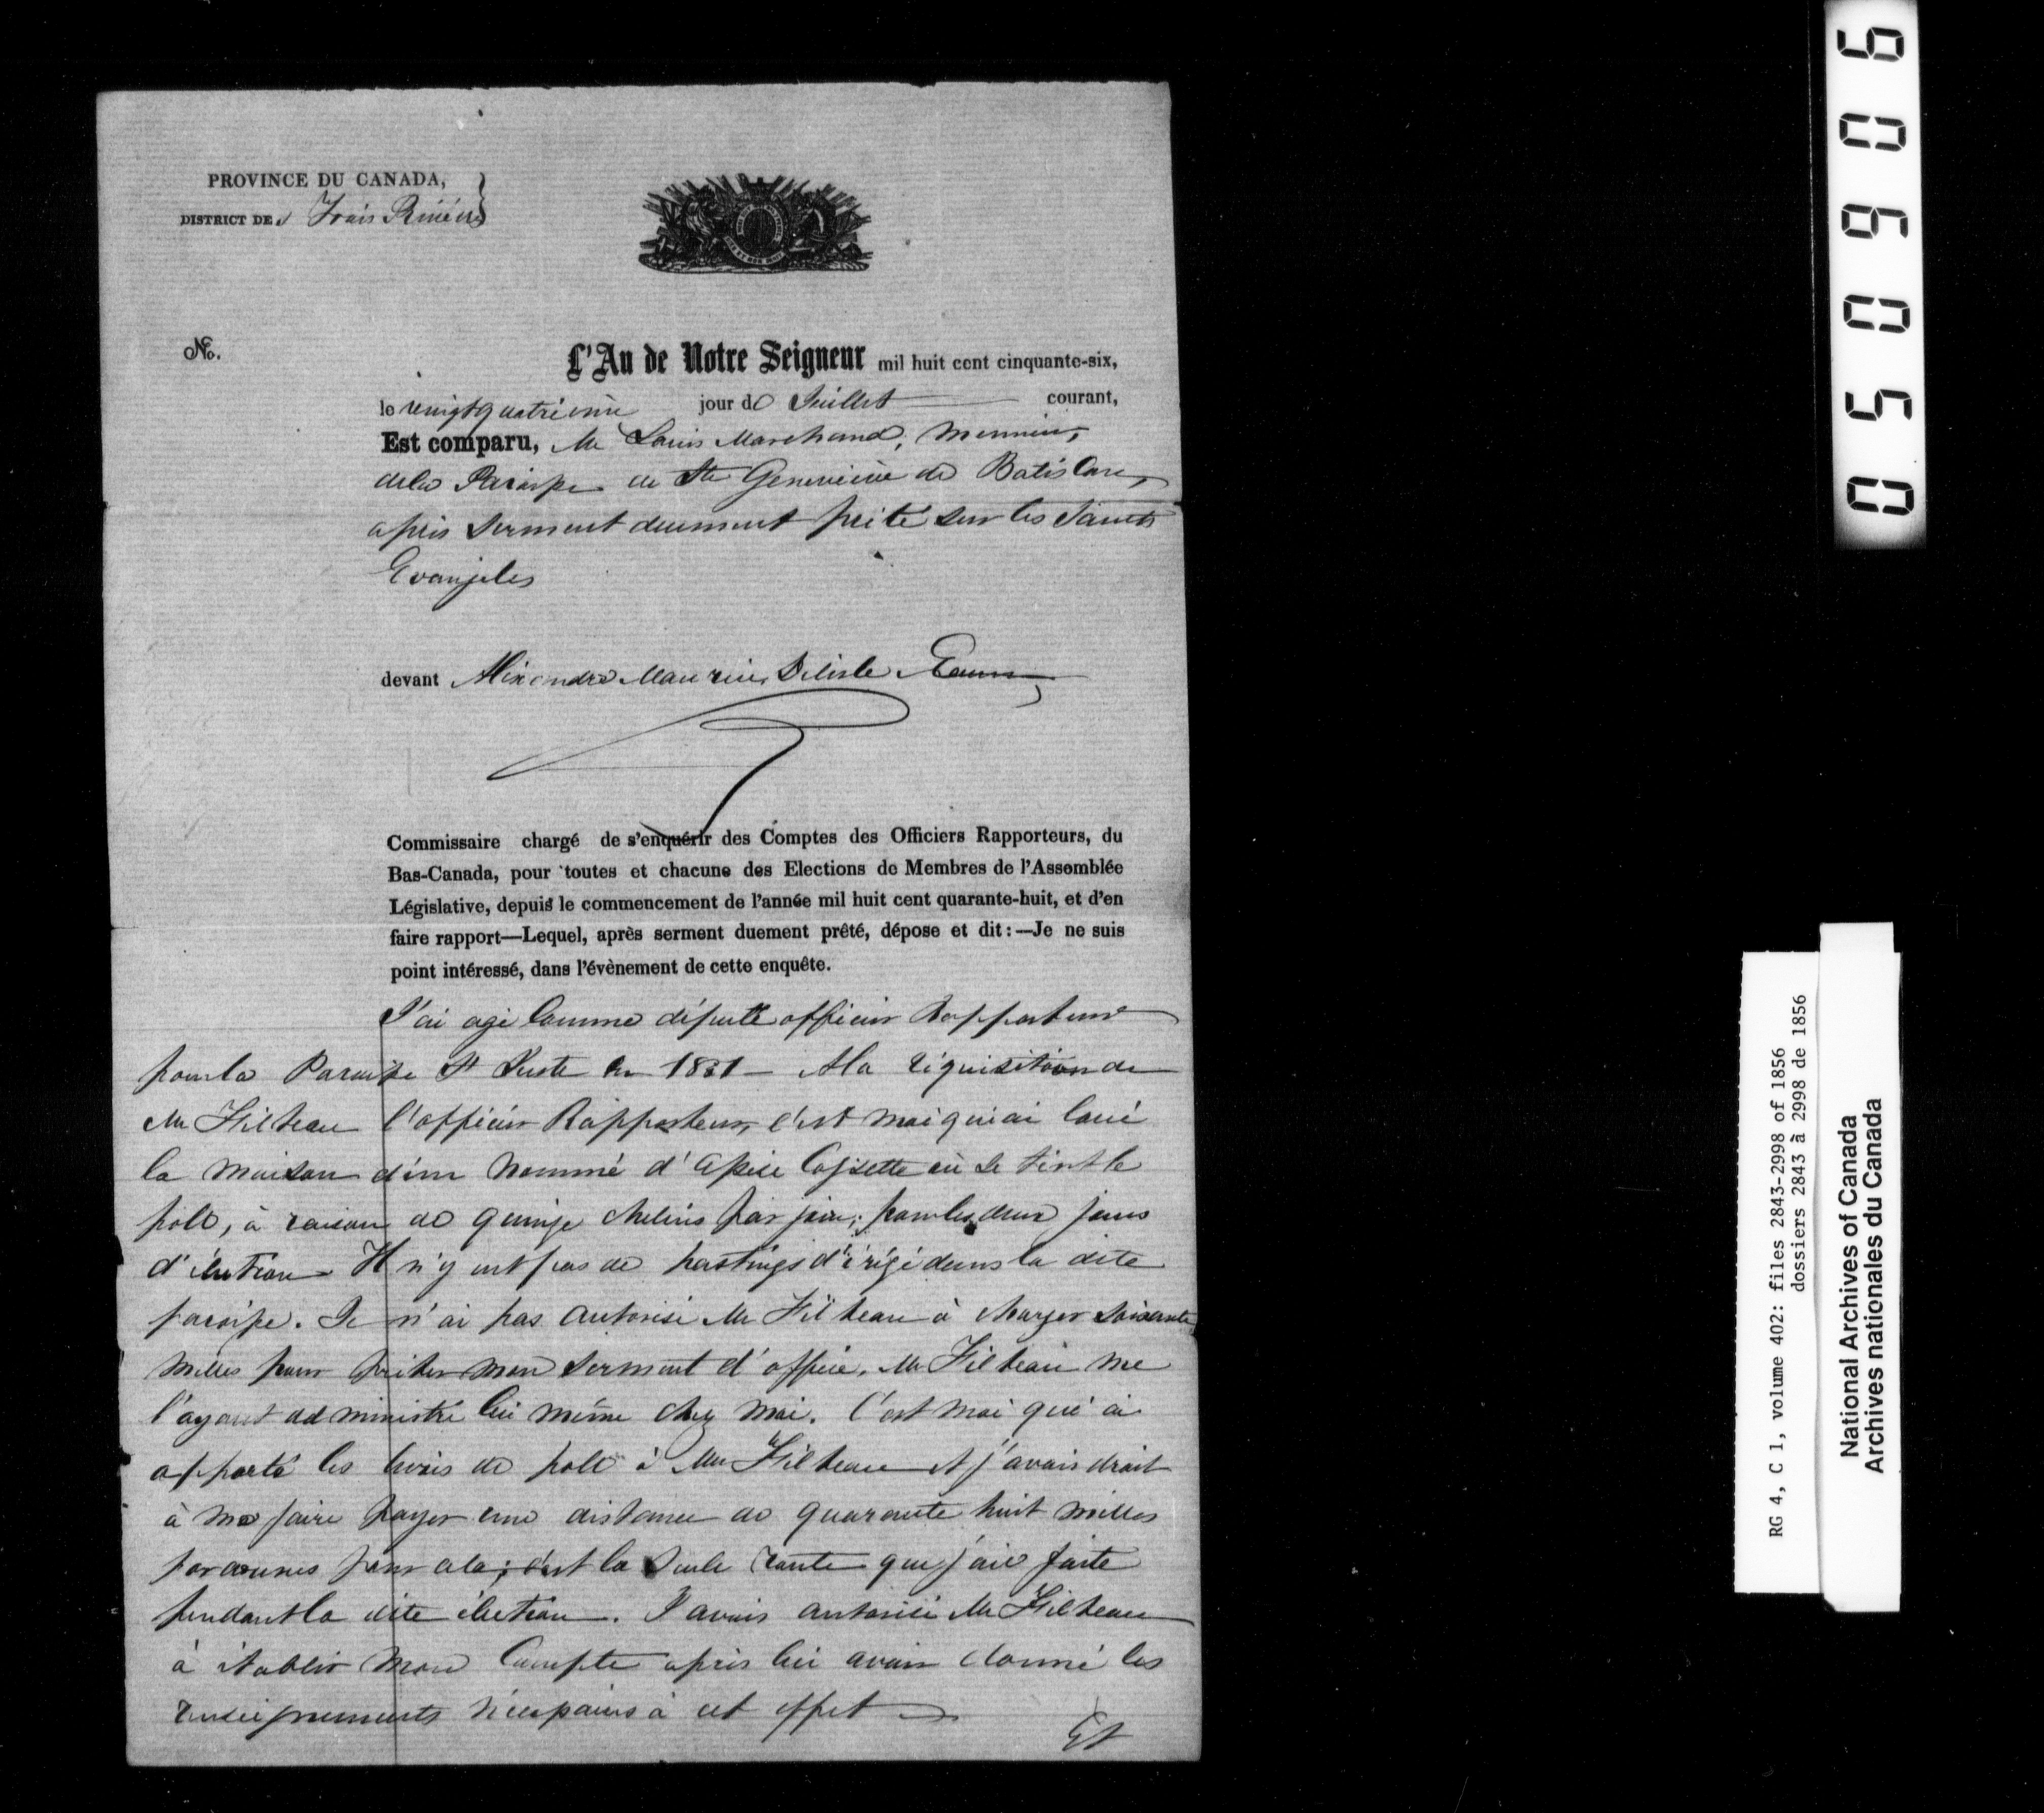 PROVINCE DU CANADA,
DISTRICT DE Trois Rivières
No.
L'An de Notre Seigneur mil huit cent cinquante-six,
le vingt quatrième jour de Juillet courant,
Est comparu, Mr Louis Marchand, Meunier,
dela Paroisse de Ste Geneviève de Batiscan,
après serment duement prêté sur les Saints
Evangiles
devant Alexandre Maurice Delisle Ecuier
Commissaire chargé de s'enquérir des Comptes des Officiers Rapporteurs, du
Bas-Canada, pour toutes et chacune des Elections de Membres de l'Assemblée
Législative, depuis le commencement de l'année mil huit cent quarante-huit, et d'en
faire rapport—Lequel, après serment duement prêté, dépose et dit:—Je ne suis
point intéressé, dans l'évènement de cette enquête.
J'ai agi comme député officier Rapporteur
pour la Paroisse St Juste en 1851 — A la réquisition de
Mr Filteau l'officier Rapporteur, c'est moi qui ai loué
la maison d'un nommé Cossette où se tint le
pole, à raison de quinze chelins par jour; pour les deux jours
d'élection. Il n'y eut pas de hustings d'érigé dans la dite
paroisse. Je n'ai pas autorisé Mr Filteau à charger soixante
milles pour prêter mon serment d'office, Mr Filteau me
l'ayant administré lui même chez moi. C'est moi qui ai
apporté les livres de pole à Mr Filteau et j'avais droit
à me faire payer une distance de quarante huit milles
parcourus pour cela; c'est la seule route que j'aie faite
pendant la dite élection. J'avais autorisé Mr Filteau
à établir mon compte après lui avoir donné les
renseignements nécessaires à cet effet
Et
050906
RG 4, C 1, volume 402: files 2843-2998 of 1856
dossiers 2843 à 2998 de 1856
National Archives of Canada
Archives nationales du Canada